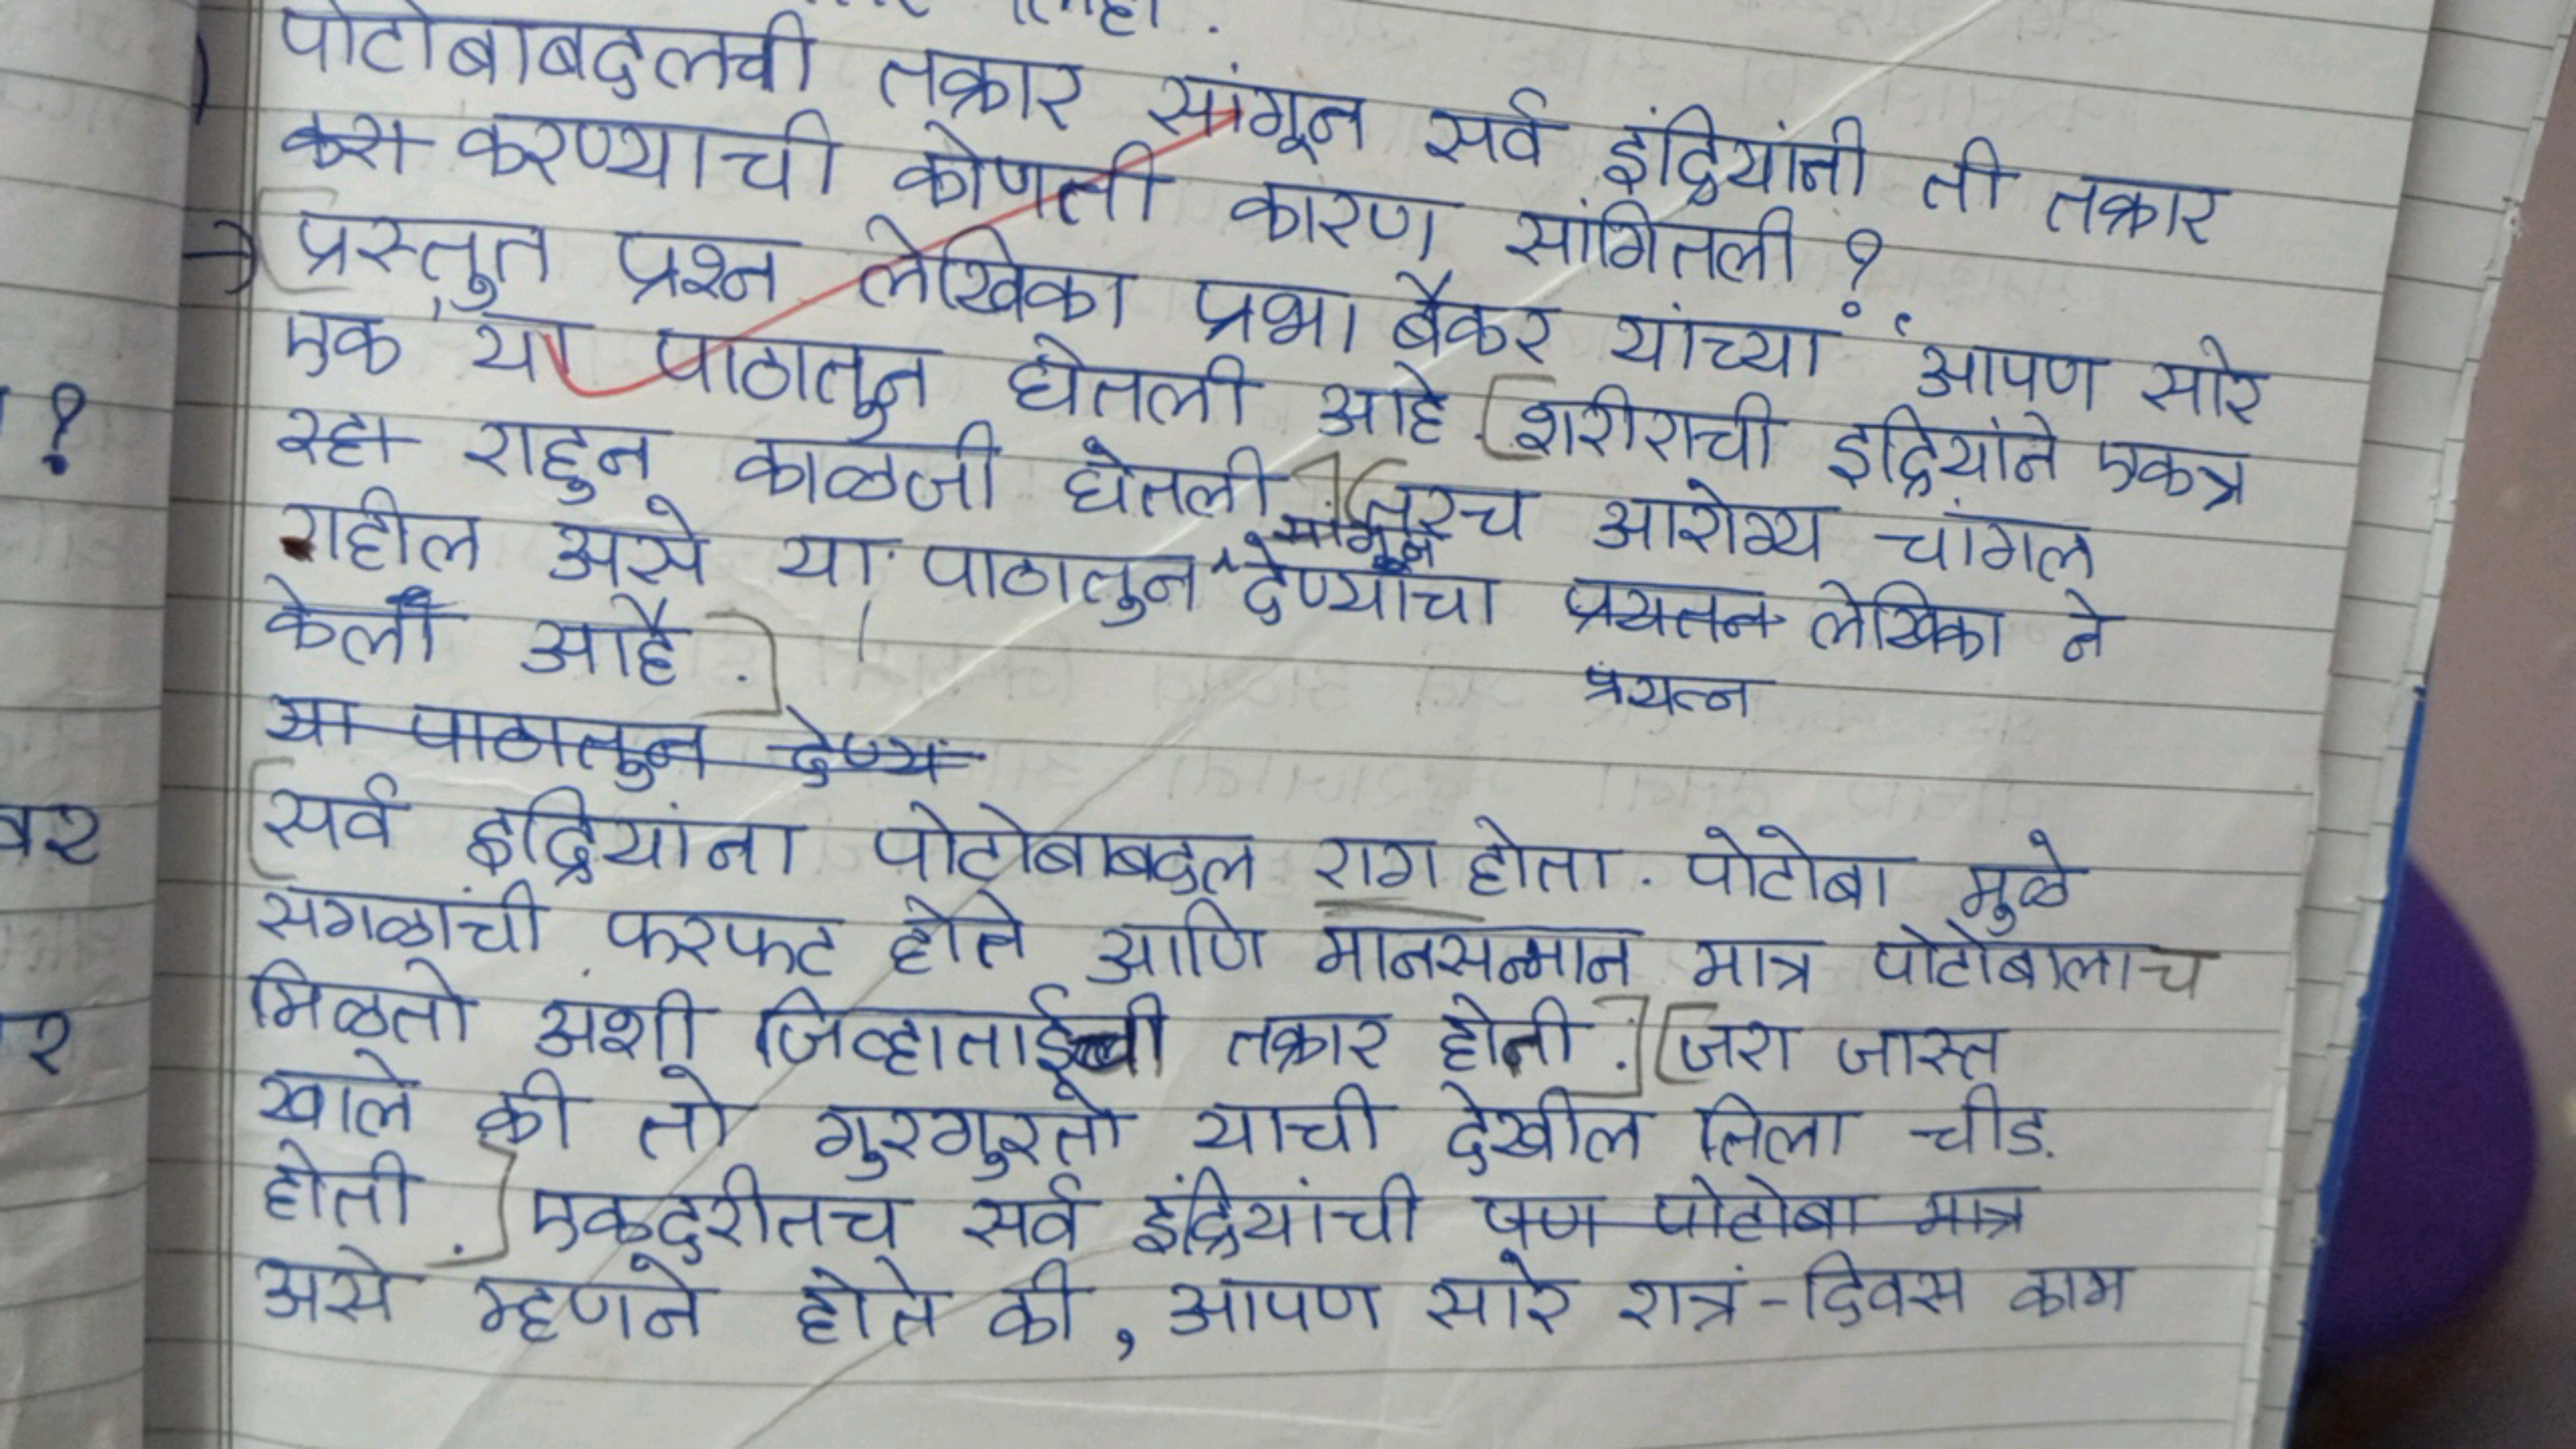 लिहा.
पोटोबाबद्दलची तक्रार सांगून सर्व इंद्रियांनी ती तक्रार
करण्याची कोणती कारण सांगितली ?
→ प्रस्तुत प्रश्न लेखिका प्रभा बैकर यांच्या 'आपण सारे
एक' या पाठातून घेतली आहे. शरीराची इद्रियांने एकत्र
राहुन काळजी घेतली तरच आरोग्य चांगल
राहील असे या पाठातुन सांगून देण्याचा प्रयतन लेखिका ने
केली आहे. प्रयत्न
या पाठातुन देण्य
सर्व इद्रियांना पोटोबाबद्दल राग होता. पोटोबा मुळे
सगळांची फरफट होते आणि मानसन्मान मात्र पोटोबालाच
मिळतो अशी जिव्हाताईची तक्रार होती. जरा जास्त
खाले की तो गुरगुरतो याची देखील तिला चीड
होती. एकदुरीतच सर्व इंद्रियांची पण पोटोबा मात्र
असे म्हणने होते की, आपण सारे रात्रं-दिवस काम
?
वर
र